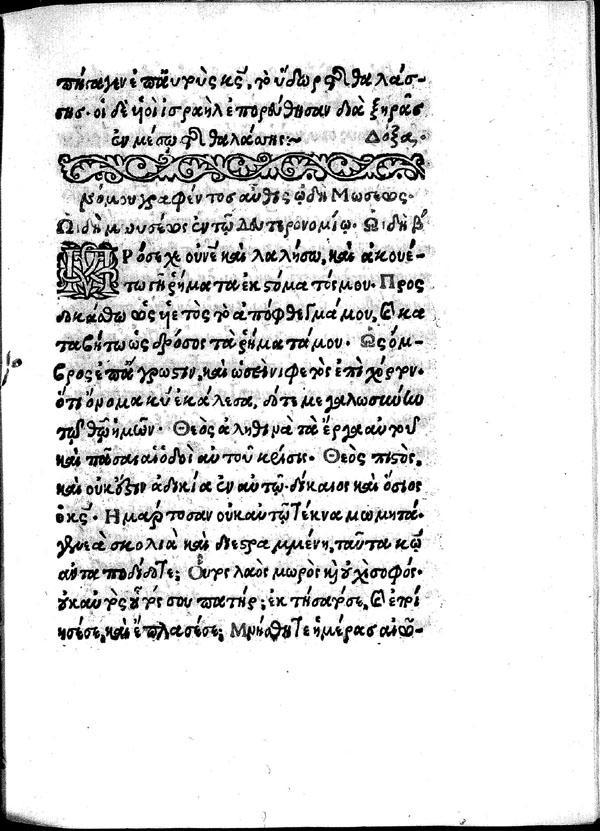 πήγαγεν ἐπ' αὐτοὺς κς, τὸ ὕδωρ τῆς θαλάσ-
σης. οἱ δὲ ὑιοὶ ἰσραὴλ ἐπορεύθησαν διὰ ξηρᾶς
ἐν μέσῳ τῆς θαλάσσης: Δόξα.
νόμου γραφέντος αὖθις ᾠδὴ Μωσέως.
Ὠιδὴ μωυσέως ἐν τῷ Δευτερονομίῳ. Ὠιδὴ β
Πρόσεχε οὐρανὲ καὶ λαλήσω, καὶ ἀκουέ-
τω γῆ ῥήματα ἐκ στόματός μου. Προς
δοκάσθω ὡς ὑετὸς τὸ ἀπόφθεγμά μου, καὶ κα
ταβήτω ὡς δρόσος τὰ ῥήματά μου. Ὡς ὄμ-
βρος ἐπ' ἄγρωστιν, καὶ ὡσεὶ νιφετὸς ἐπὶ χόρτον.
ὅτι ὄνομα κυ ἐκάλεσα, δότε μεγαλωσύνην
τῷ θῷ ἡμῶν. Θεὸς ἀληθινὰ τὰ ἔργα αὐτοῦ
καὶ πᾶσαι αἱ ὁδοὶ αὐτοῦ κρίσις. Θεὸς πιστὸς,
καὶ οὐκ ἔστιν ἀδικία ἐν αὐτῷ. δίκαιος καὶ ὅσιος
ὁ κς. Ημάρτοσαν οὐκ αὐτῷ τέκνα μωμητά.
γενεὰ σκολιὰ καὶ διεστραμμένη, ταῦτα κῷ
ἀνταποδίδοτε; Οὗτος λαὸς μωρὸς καὶ οὐχὶ σοφός.
οὐκ αὐτὸς οὗτός σου πατήρ; ἐκτήσατό σε, καὶ ἐποί
ησέ σε, καὶ ἔπλασέ σε; Μνήσθητε ἡμέρας αἰῶ-